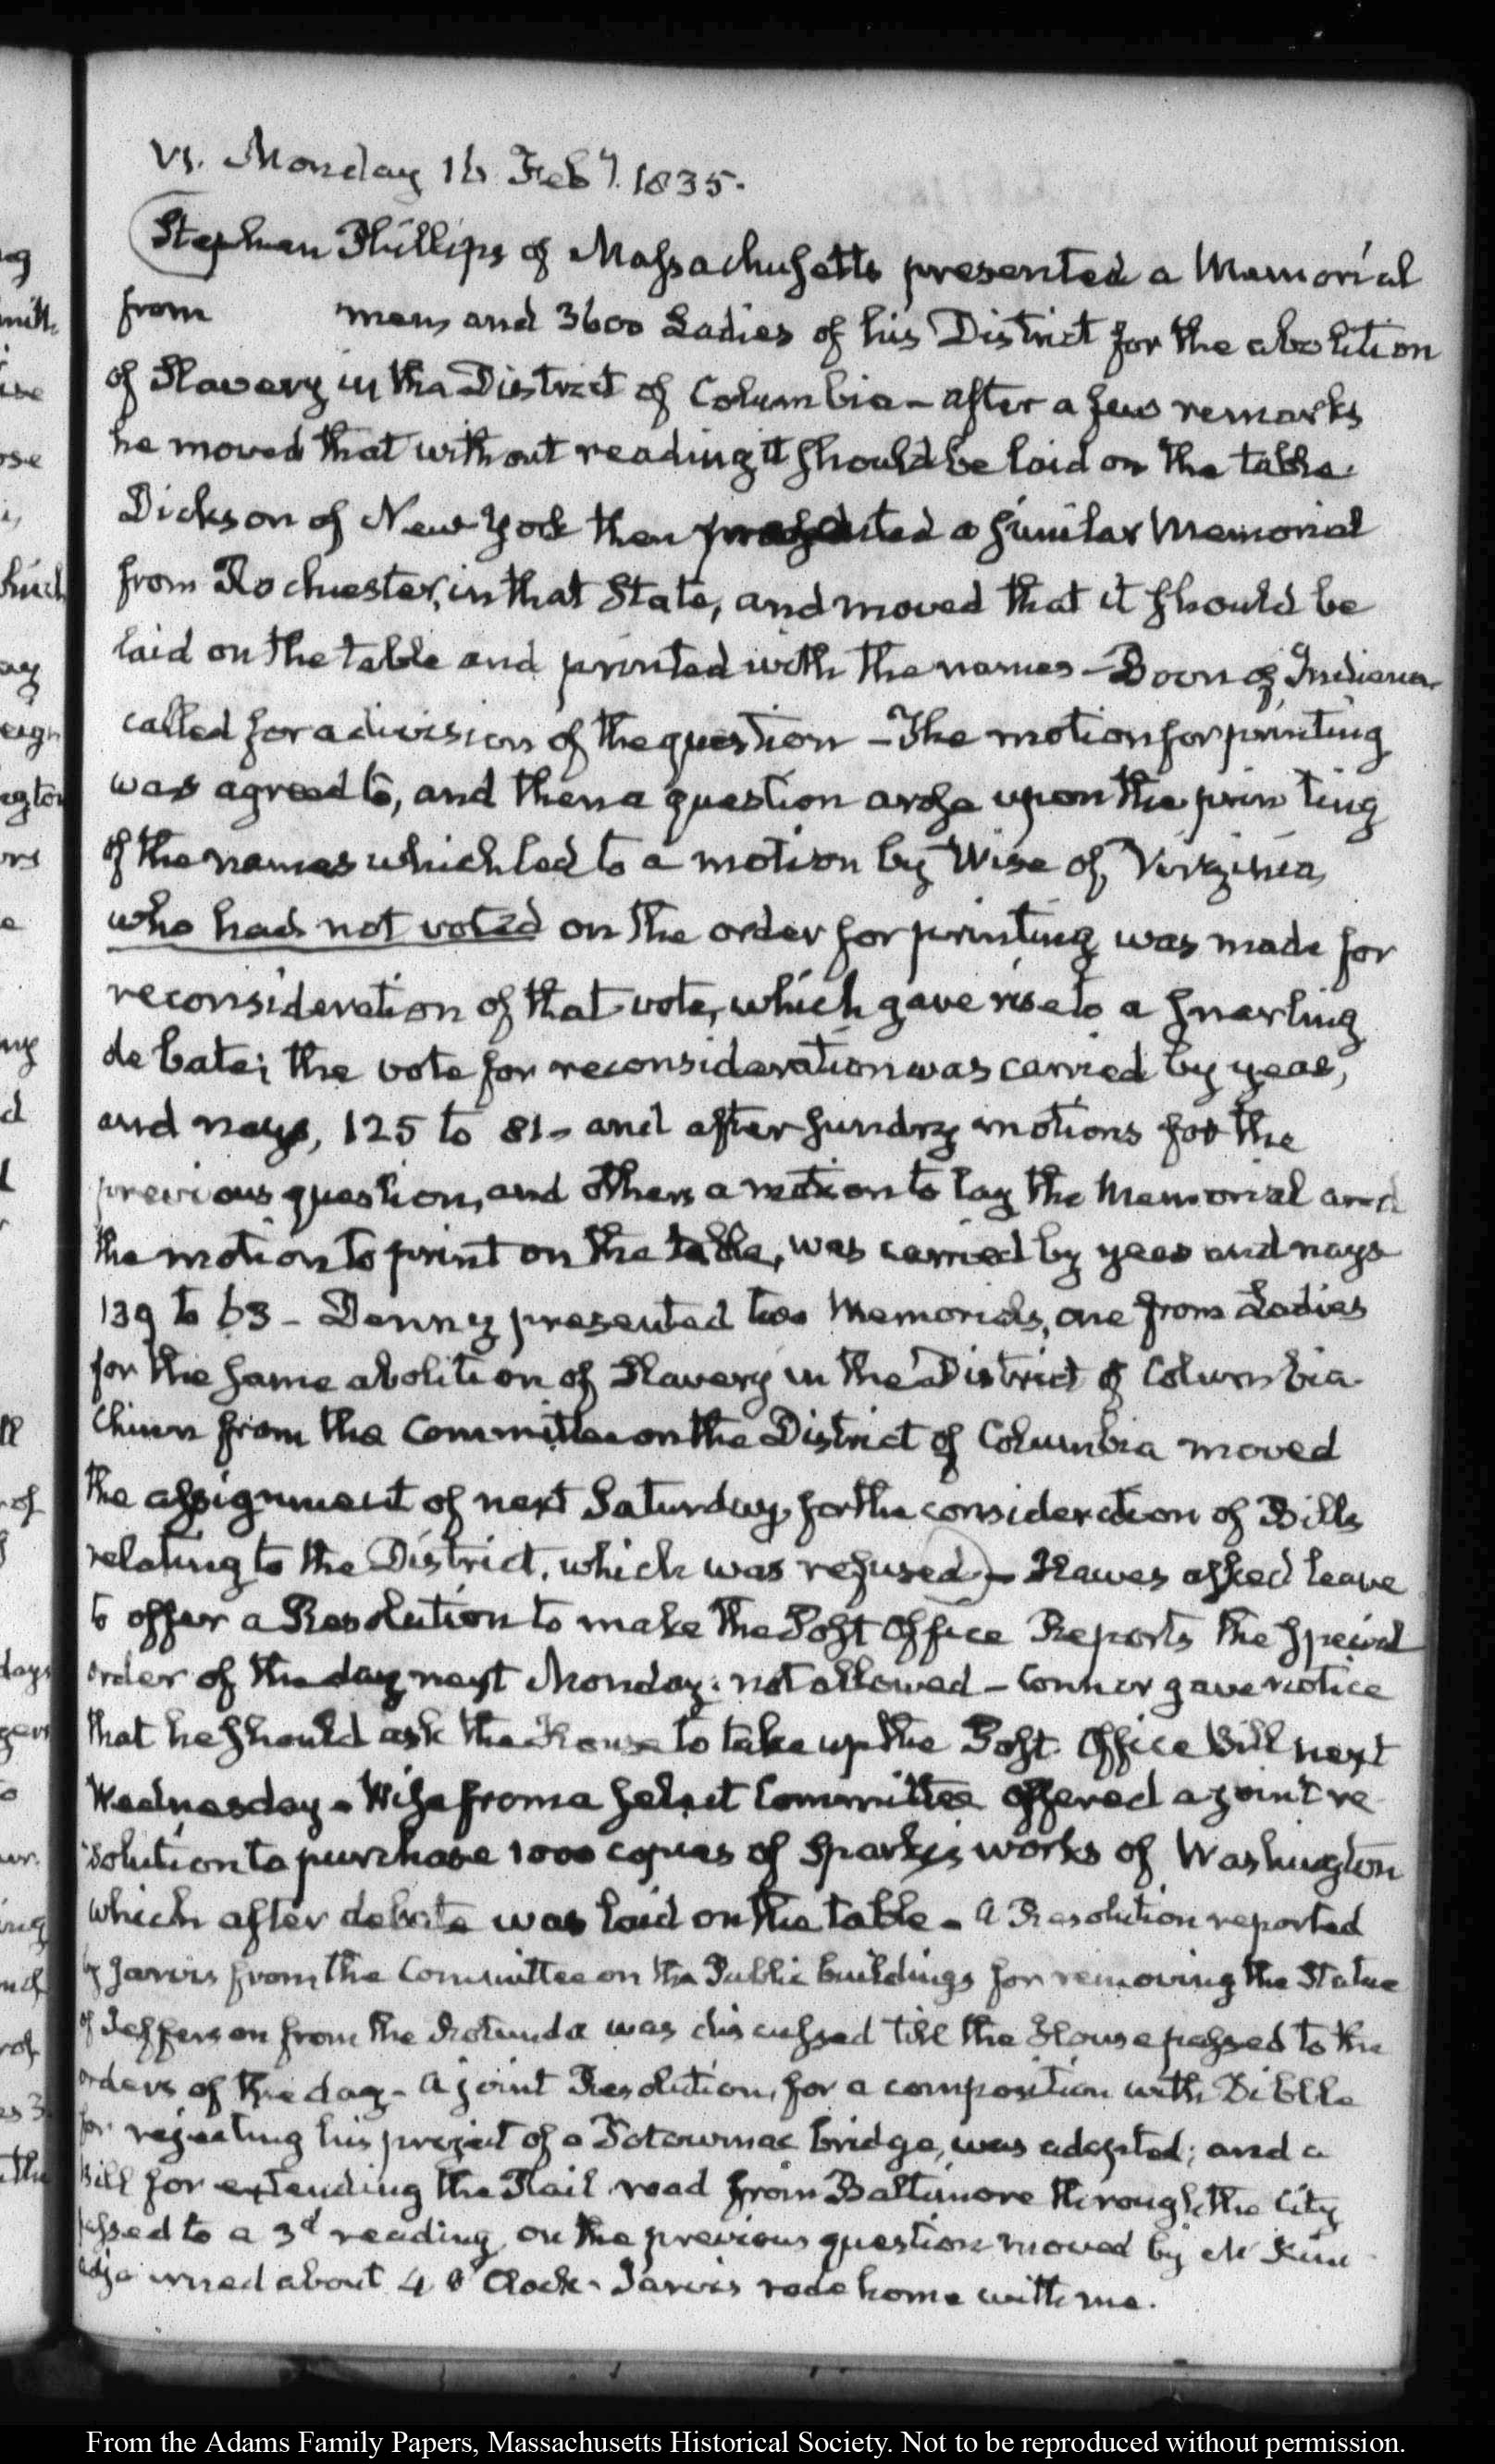 VI. Monday 16 Feby. 1835.
Stephen Phillips of Massachusetts presented a Memorial
from men, and 3600 Ladies of his District for the abolition
of Slavery in the District of Columbia – after a few remarks
he moved that without reading it should be laid on the table.
Dickson of New York then presented a similar Memorial
from Rochester, in that State, and moved that it should be
laid on the table and printed with the names – Boon of Indiana
called for a division of the question – The motion for printing
was agreed to, and then a question arose upon the printing
of the names which led to a motion by Wise of Virginia,
who had not voted on the order for printing was made for
reconsideration of that vote, which gave rise to a snarling
debate; the vote for reconsideration was carried by yeas,
and nays, 125 to 81 – and after sundry motions for the
previous question, and others a motion to lay the Memorial and
the motion to print on the table, was carried by yeas and nays
139 to 63 – Denny presented two Memorials, one from Ladies
for the same abolition of Slavery in the District of Columbia.
Chinn from the Committee on the District of Columbia moved
the assignment of next Saturday, for the consideration of Bills
relating to the District, which was refused – Hawes asked leave
to offer a Resolution to make the Post Office Reports the special
order of the day next Monday: not allowed – Connor gave notice
that he should ask the House to take up the Post Office Bill next
Wednesday – Wise from a select Committee offered a joint re
solution to purchase 1000 copies of Sparks's works of Washington
which after debate was laid on the table – A Resolution reported
by Jarvis from the Committee on the Public buildings for removing the Statue
of Jefferson from the Rotunda was discussed till the House passed to the
orders of the day – A joint Resolution, for a composition with Dibble
for rejecting his project of a Potowmac bridge, was adopted; and a
Bill for extending the Rail road from Baltimore through the City
passed to a 3d reading, on the previous question moved by McKim
adjourned about 4 O'Clock. Jarvis rode home with me.
From the Adams Family Papers, Massachusetts Historical Society. Not to be reproduced without permission.